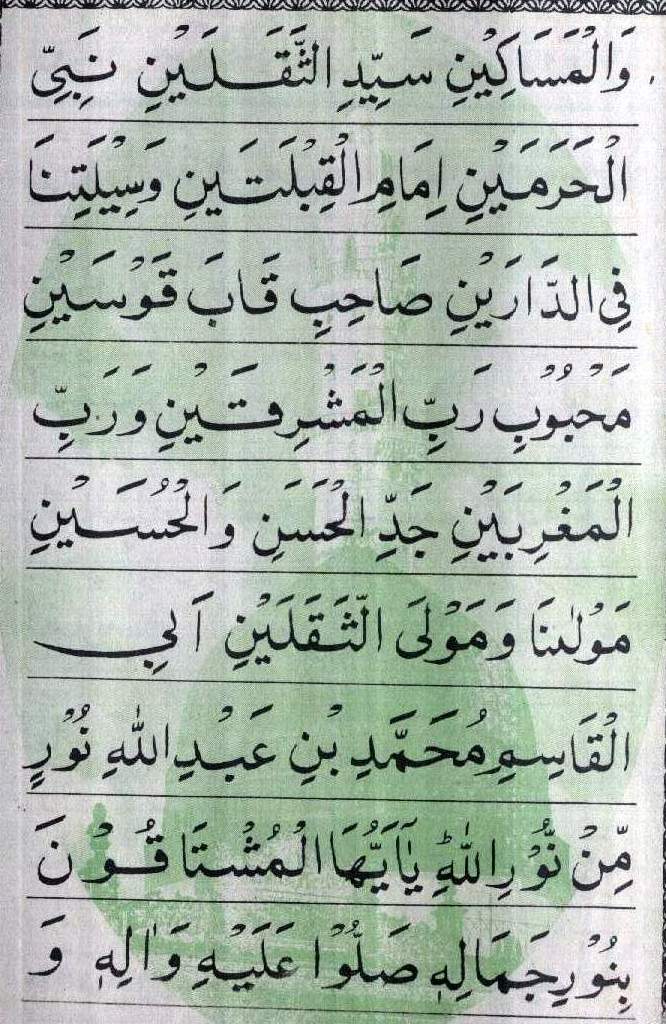 وَالْمَسَاكِيْنِ سَيِّدِ الثَّقَلَيْنِ نَبِيِّ
الْحَرَمَيْنِ اِمَامِ الْقِبْلَتَيْنِ وَسِيْلَتِنَا
فِي الدَّارَيْنِ صَاحِبِ قَابَ قَوْسَيْنِ
مَحْبُوْبِ رَبِّ الْمَشْرِقَيْنِ وَرَبِّ
الْمَغْرِبَيْنِ جَدِّ الْحَسَنِ وَالْحُسَيْنِ
مَوْلٰىنَا وَمَوْلَى الثَّقَلَيْنِ اَبِي
الْقَاسِمِ مُحَمَّدِ بْنِ عَبْدِ اللّٰهِ نُوْرٍ
مِّنْ نُّوْرِ اللّٰهِ يٰۤاَيُّهَا الْمُشْتَاقُوْنَ
بِنُوْرِ جَمَالِهٖ صَلُّوْا عَلَيْهِ وَاٰلِهٖ وَ